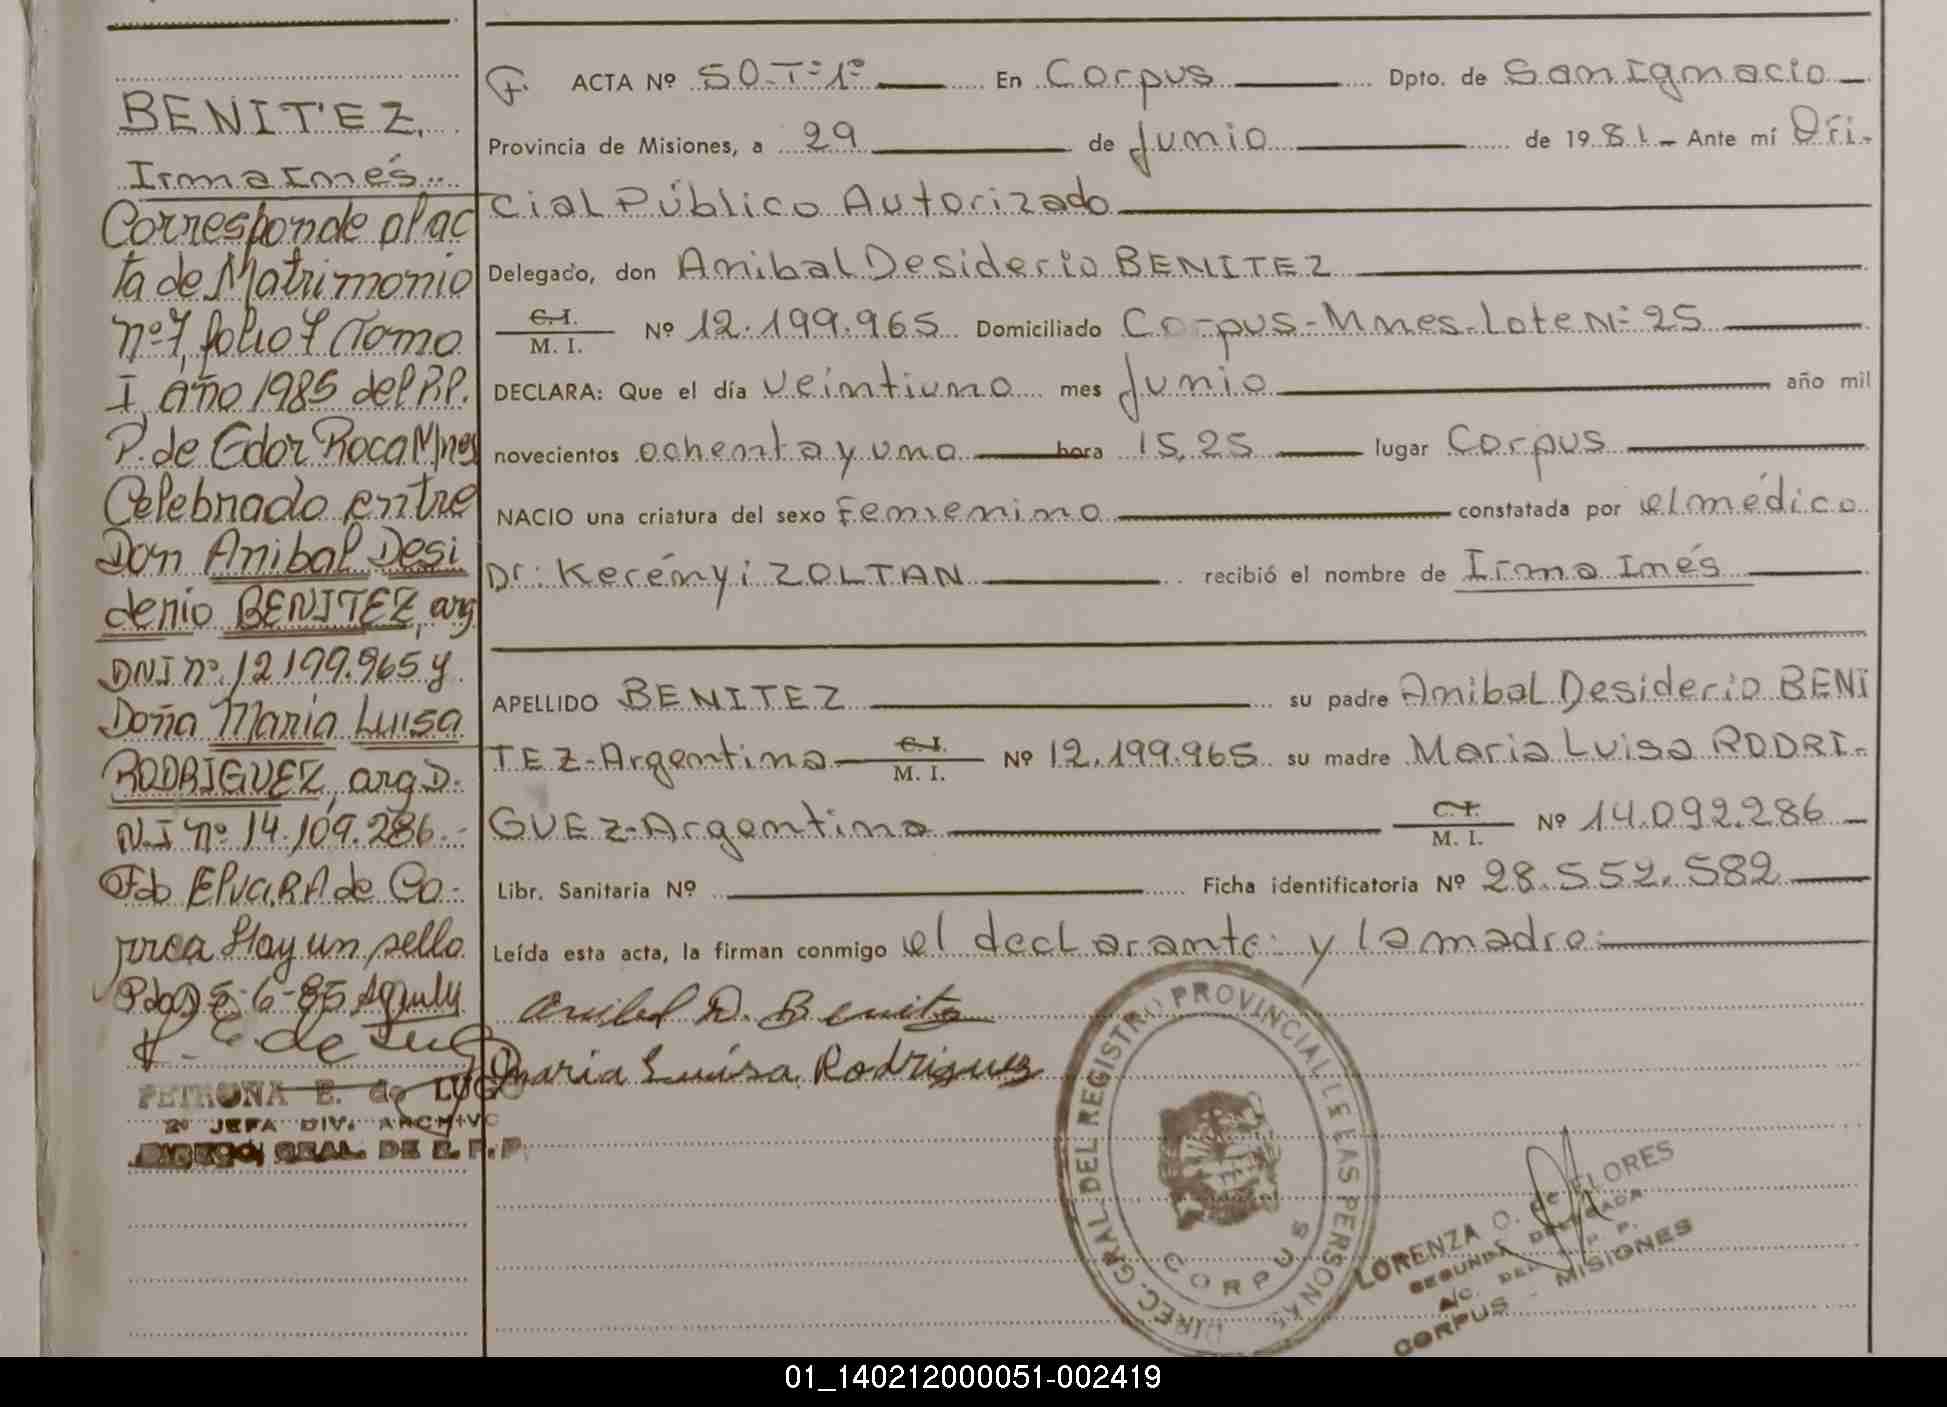 BENITEZ,
Irma Inés
Corresponde al ac
ta de Matrimonio
nº 7, folio 7 Tomo
I, año 1985 del R.P.
P. de Edor Roca Mnes
Celebrado entre
Don Anibal Desi
derio BENITEZ, arg
DNI nº 12199.965 y
Doña Maria Luisa
RODRIGUEZ, arg D.
N.I nº 14.109.286.-
Fdo Elva R.A de Co-
rrea Hay un sello
Pdas 5-6-85
PETRONA E. de LUGO
2º JEFA DIV. ARCHIVO
DIRECC. GRAL. DE R. P. P.
F. ACTA Nº 50-Tº1º En Corpus Dpto. de San Ignacio
Provincia de Misiones, a 29 de Junio de 1981.- Ante mí Ofi-
cial Público Autorizado
Delegado, don Anibal Desiderio BENITEZ
C.I. / M. I. Nº 12.199.965 Domiciliado Corpus-Mnes-Lote Nº 25
DECLARA: Que el día veintiuno mes Junio año mil
novecientos ochenta y uno hora 15,25 lugar Corpus
NACIO una criatura del sexo Femenino constatada por el médico
Dr: Kerényi ZOLTAN recibió el nombre de Irma Inés
APELLIDO BENITEZ su padre Anibal Desiderio BENI
TEZ-Argentina C.I. / M. I. Nº 12.199.965 su madre Maria Luisa RODRI-
GUEZ-Argentina C.I. / M. I. Nº 14.092.286
Libr. Sanitaria Nº Ficha identificatoria Nº 28.552.582
Leída esta acta, la firman conmigo el declarante y la madre
Anibal D. Benitez
Maria Luisa Rodriguez
DIREC. GRAL. DEL REGISTRO PROVINCIAL DE LAS PERSONAS
CORPUS
LORENZA O. de FLORES
SEGUNDA DELEGADA
A/C. DEL R. P. P.
CORPUS - MISIONES
01_140212000051-002419